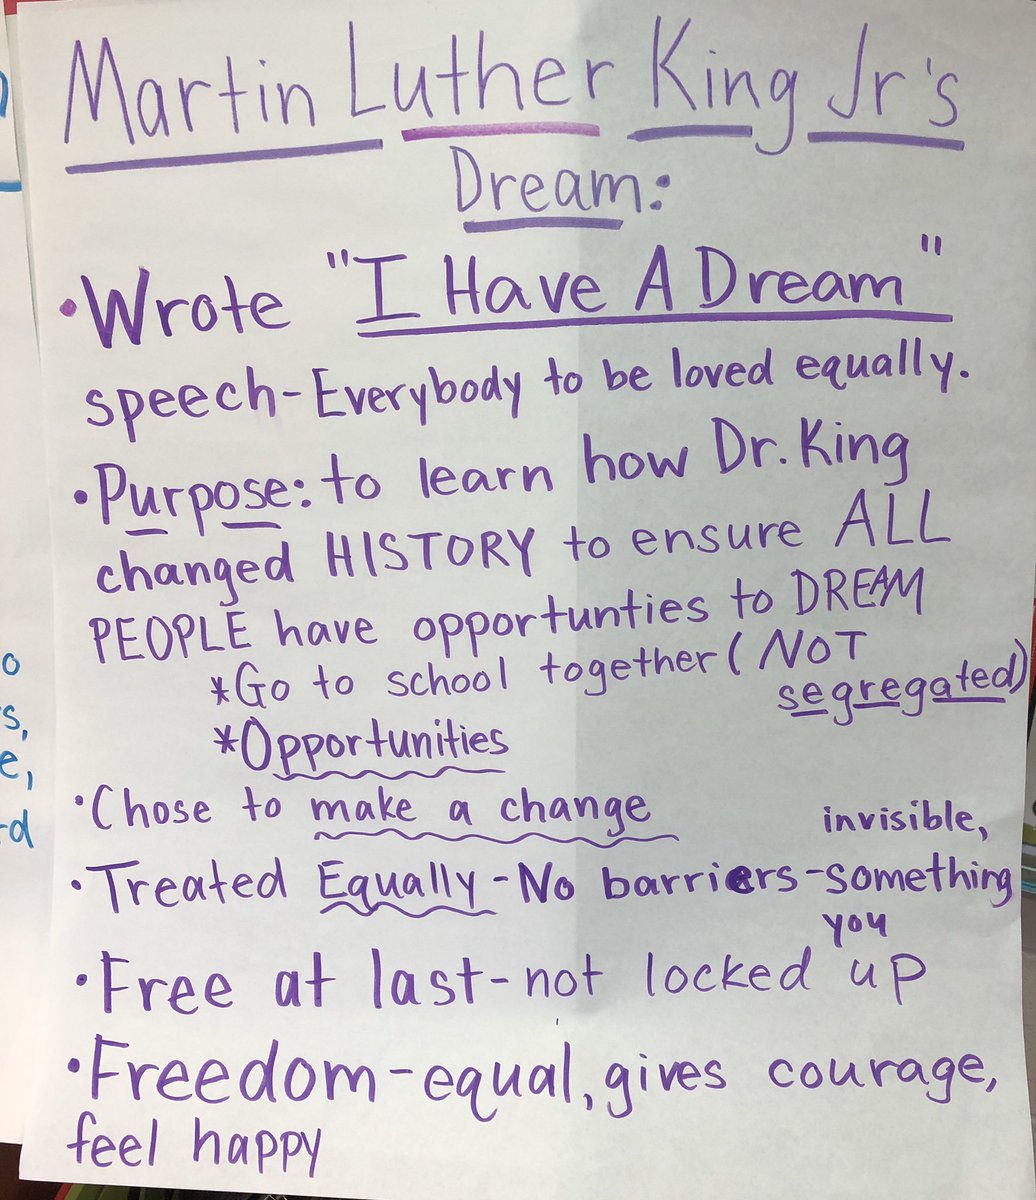 Martin Luther King Jr's
Dream:
•Wrote "I Have A Dream"
speech-Everybody to be loved equally.
•Purpose: to learn how Dr. King
changed HISTORY to ensure ALL
PEOPLE have opportunties to DREAM
*Go to school together (NOT
segregated)
*Opportunities
•Chose to make a change
invisible,
•Treated Equally-No barriers-something
you
•Free at last-not locked up
•Freedom-equal, gives courage,
feel happy
o
s,
e,
rd